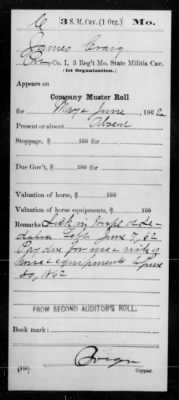 C | 3 S. M. Cav. (1 Org.) | Mo.
James Craig
Co. I, 3 Reg't Mo. State Militia Cav.
(1st Organization.)
Appears on
Company Muster Roll
for May & June, 1862
Present or absent Absent
Stoppage, $ 100 for
Due Gov't, $ 100 for
Valuation of horse, $ 100
Valuation of horse equipments, $ 100
Remarks: Sick in Hosp'l at Se-
dalia Left June 7, 62
Pay due for use & risk of
horse & equipments to June
30, 1862
FROM SECOND AUDITOR'S ROLL.
Book mark:
(358)
Copyist.